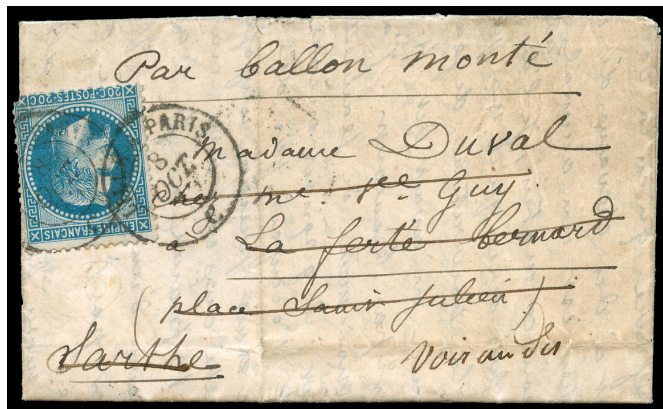 Par ballon monté
20C-POSTES-20C
EMPIRE FRANÇAIS
PARIS
8
OCT.
Madame Duval
chez Me. Ve Guy
à La ferté bernard
(place Saint Julien)
Sarthe
Voir au dos